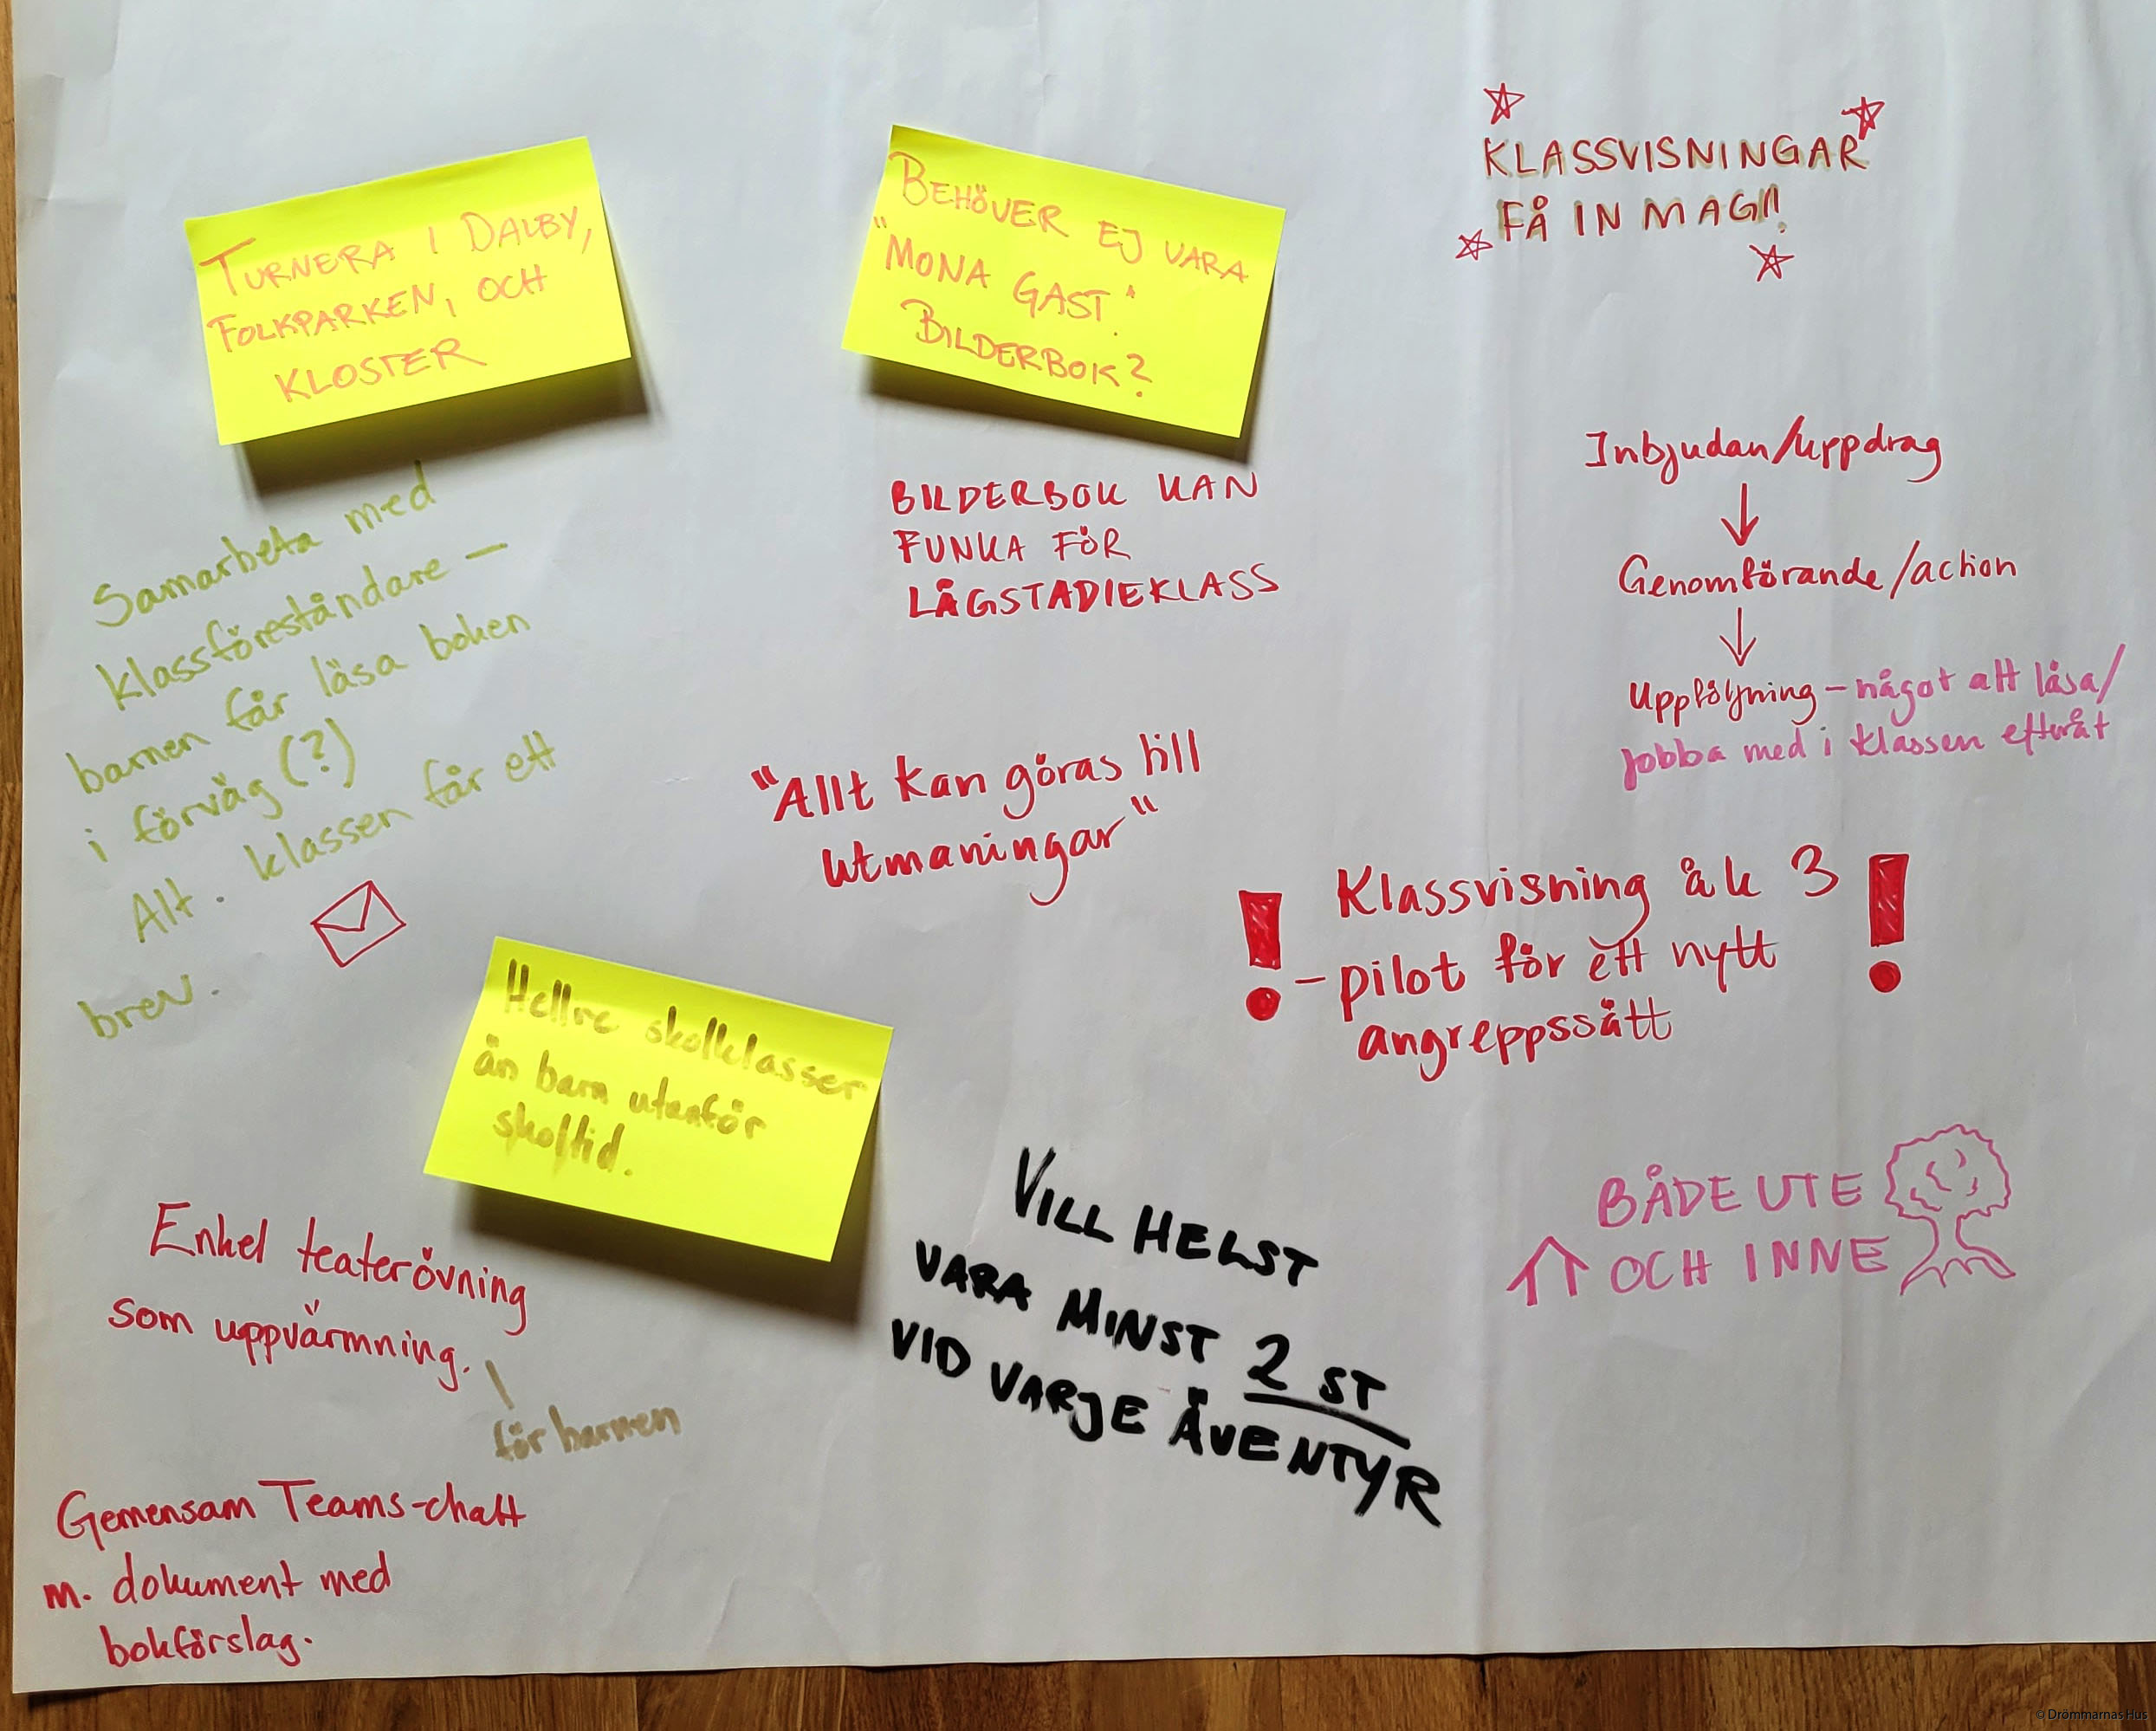 TURNERA I DALBY,
FOLKPARKEN, OCH
KLOSTER
BEHÖVER EJ VARA
"MONA GAST".
BILDERBOK?
KLASSVISNINGAR
FÅ IN MAGI!
Samarbeta med
klassföreståndare –
barnen får läsa boken
i förväg (?)
Alt. klassen får ett
brev.
BILDERBOK KAN
FUNKA FÖR
LÅGSTADIEKLASS
Inbjudan/uppdrag
Genomförande/action
Uppföljning – något att läsa/
jobba med i klassen efteråt
"Allt kan göras till
utmaningar"
! Klassvisning åk 3 !
– pilot för ett nytt
angreppssätt
Hellre skolklasser
än barn utanför
skoltid.
BÅDE UTE
OCH INNE
Enkel teaterövning
som uppvärmning.
för barnen
VILL HELST
VARA MINST 2 ST
VID VARJE ÄVENTYR
Gemensam Teams-chatt
m. dokument med
bokförslag.
© Drömmarnas Hus